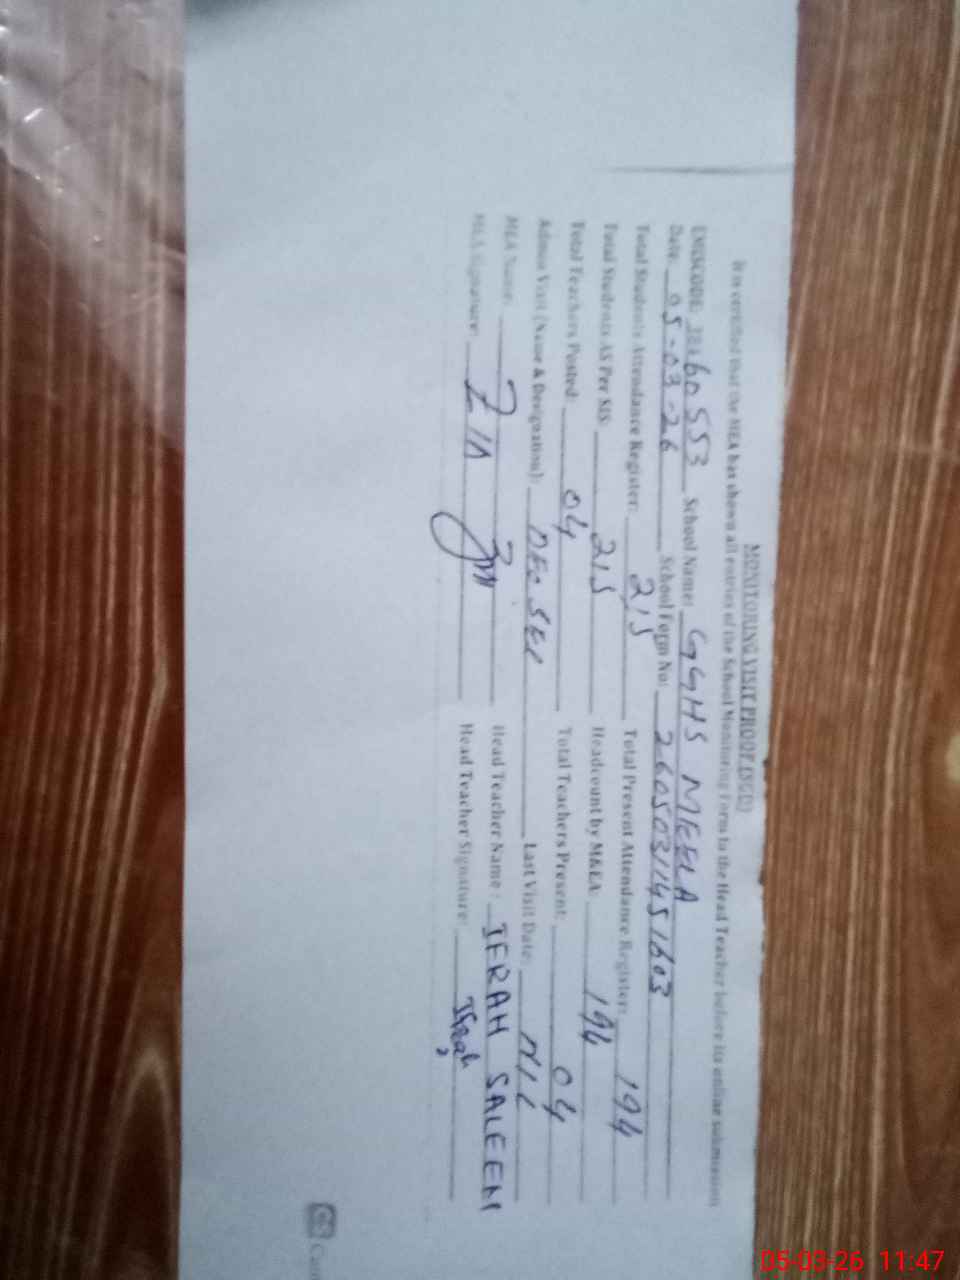 MONITORING VISIT PROOF (SED)
It is certified that the MEA has shown all entries of the School Monitoring Form to the Head Teacher before its online submission
EMISCODE: School Name: GGHS MEELA
Date: 05-03-26 School Form No: 26050311451603
Total Students Attendance Register: 215 Total Present Attendance Register: 194
Total Students AS Per SIS: 215 Headcount by M&EA: 194
Total Teachers Posted: 04 Total Teachers Present: 04
Admin Visit (Name & Designation): Last Visit Date: NIL
MEA Name: Head Teacher Name: IFRAH SALEEM
MEA Signature: Head Teacher Signature: Ifrah
05-03-26 11:47